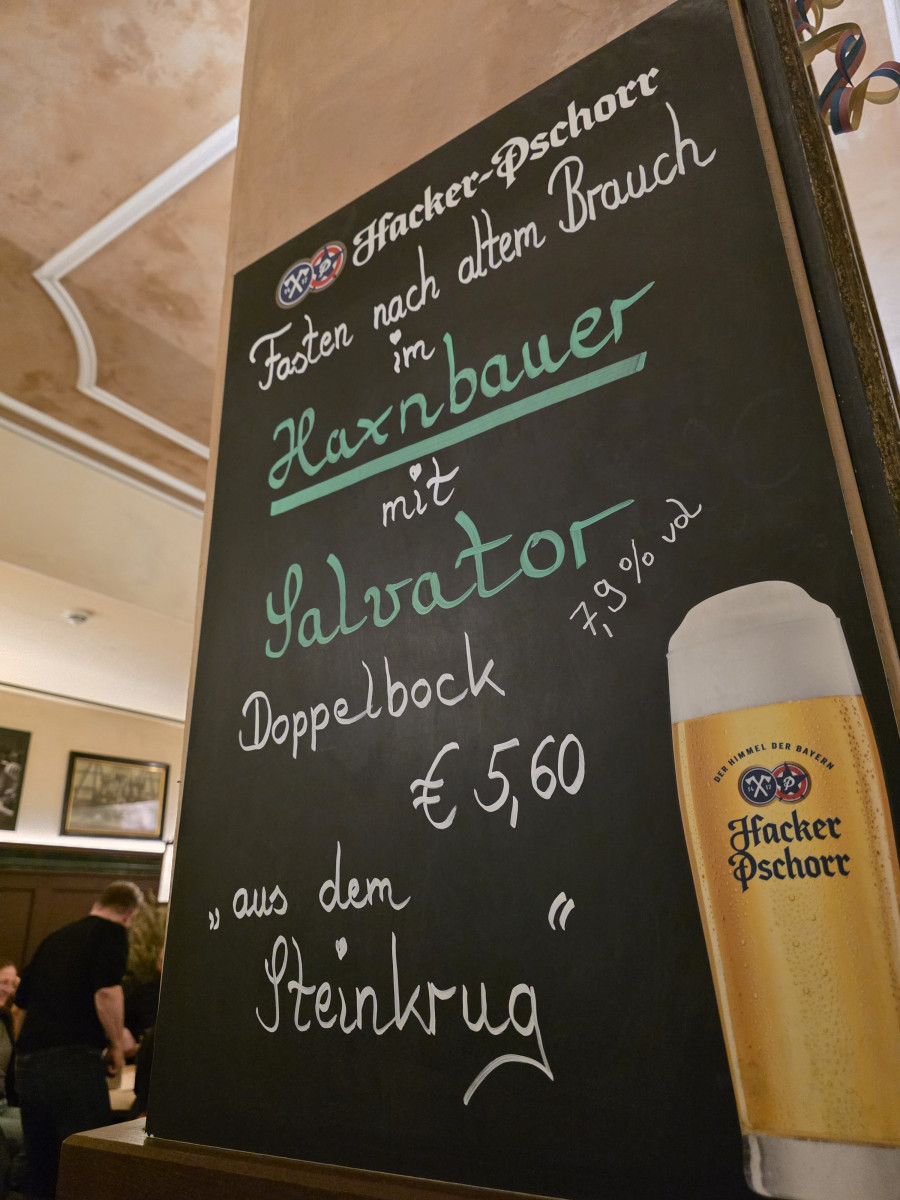 Hacker-Pschorr
Fasten nach altem Brauch
im
Haxnbauer
mit
Salvator
7,9% vol
Doppelbock
€ 5,60
„aus dem
Steinkrug“
DER HIMMEL DER BAYERN
Hacker
Pschorr